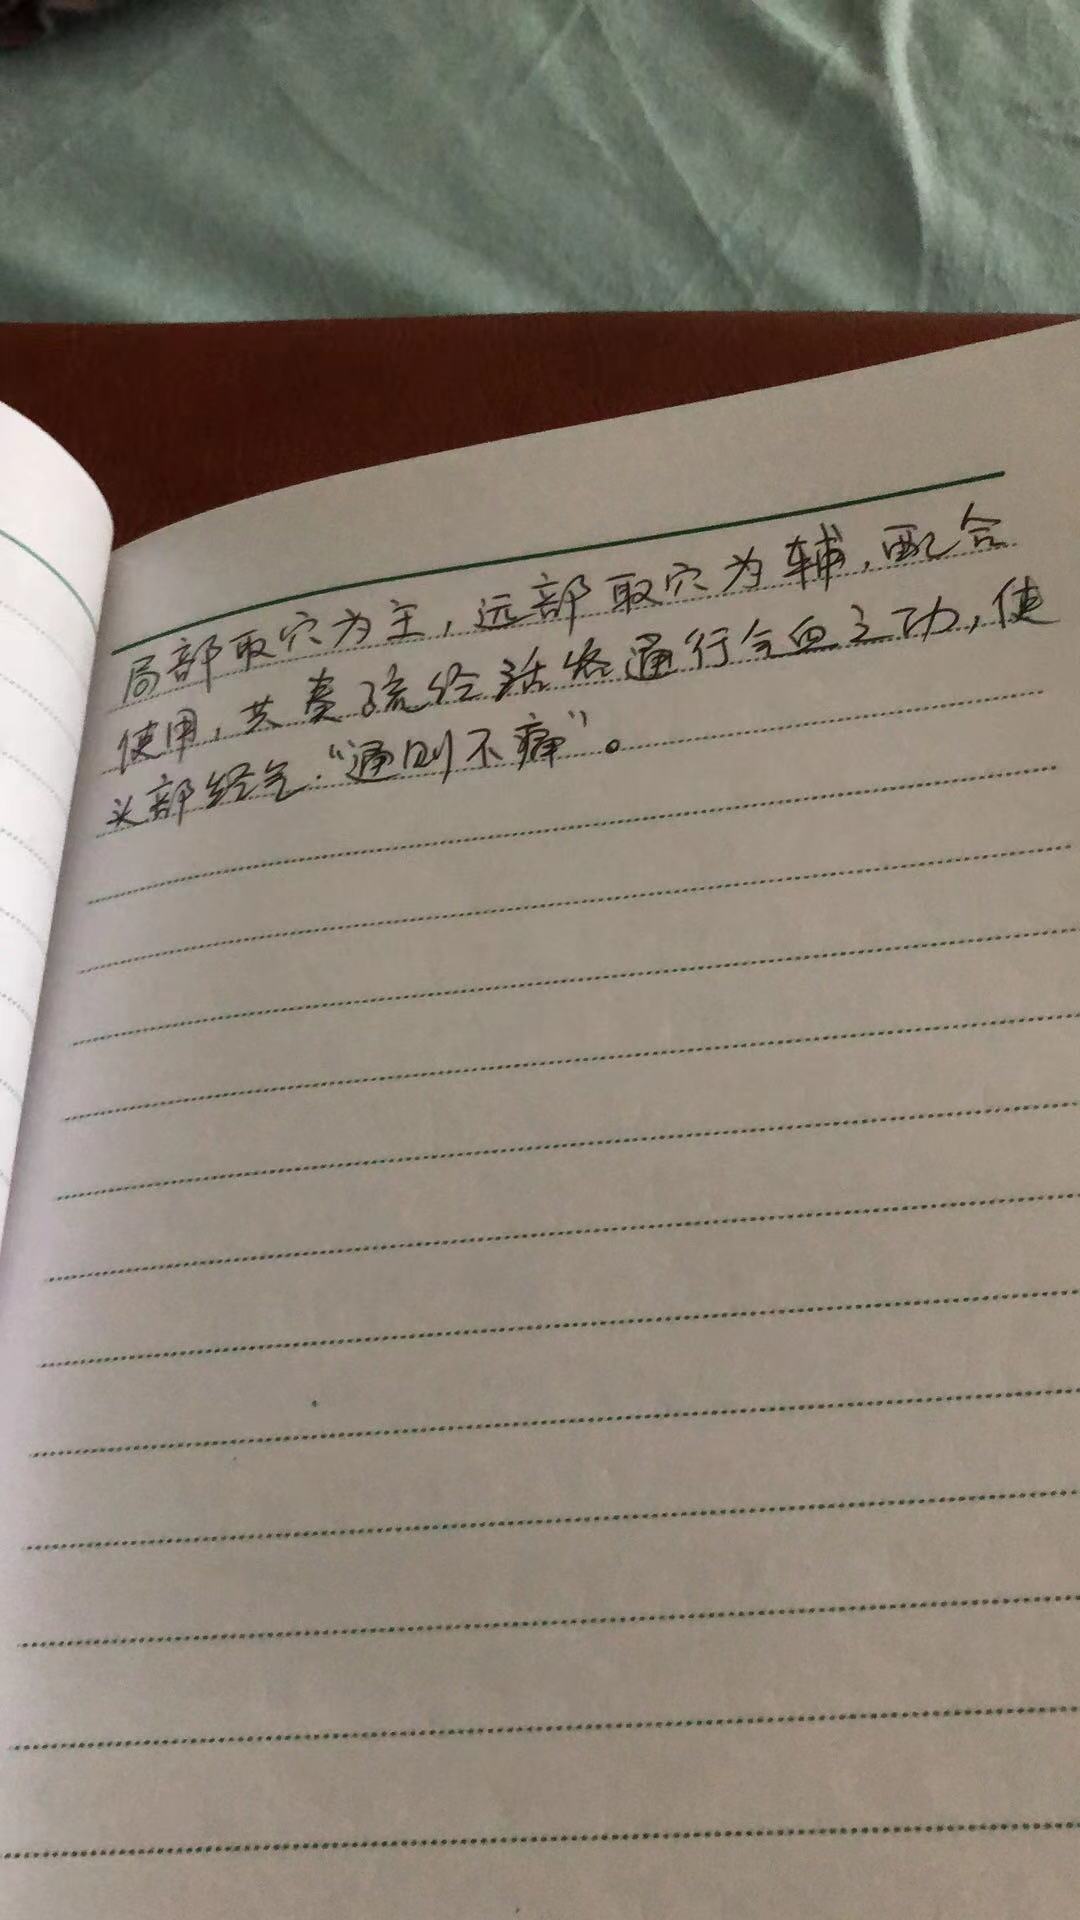 局部取穴为主，远部取穴为辅，配合
使用，共奏疏经活络通行气血之功，使
头部经气“通则不痛”。